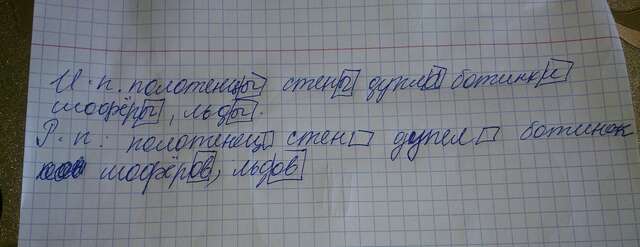 И. п. полотенцы стены дупла ботинки
шофёры, льды.
Р. п. полотенец стен дупел ботинок
шофёров, льдов